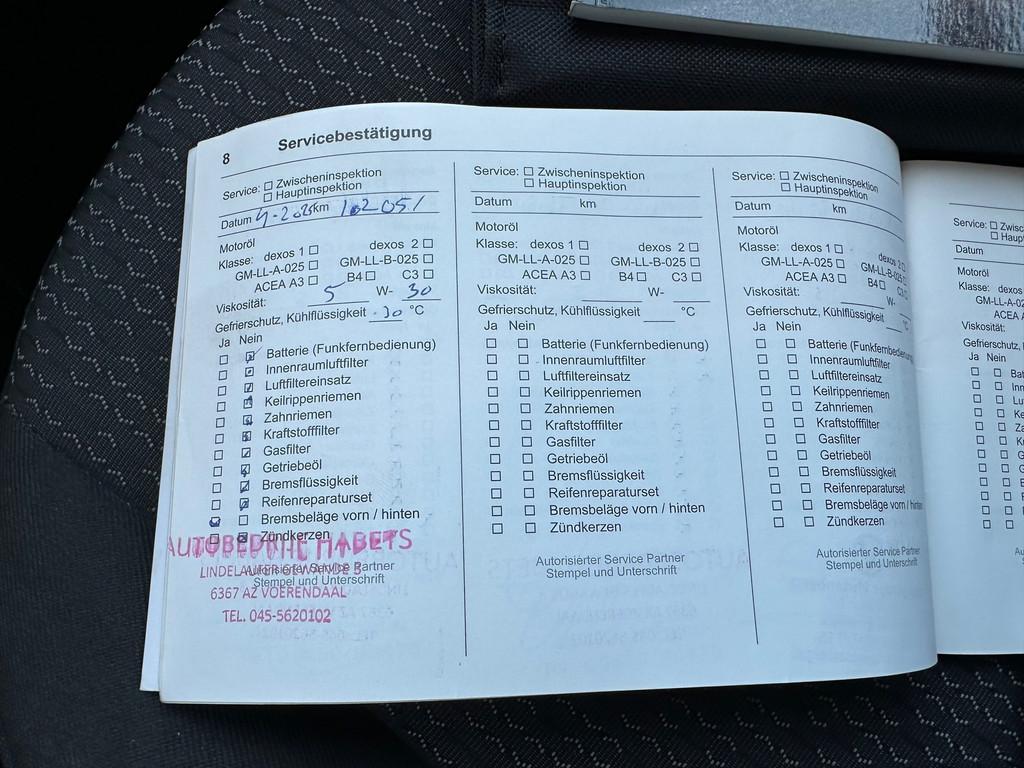 8 Servicebestätigung
Service: ☐ Zwischeninspektion
☐ Hauptinspektion
Datum km 102051
Motoröl
Klasse: dexos 1 ☐ dexos 2 ☐
GM-LL-A-025 ☐ GM-LL-B-025 ☐
ACEA A3 ☐ B4 ☐ C3 ☐
Viskosität: 5 W- 30
Gefrierschutz, Kühlflüssigkeit -30 °C
Ja Nein
Batterie (Funkfernbedienung)
Innenraumluftfilter
Luftfiltereinsatz
Keilrippenriemen
Zahnriemen
Kraftstofffilter
Gasfilter
Getriebeöl
Bremsflüssigkeit
Reifenreparaturset
Bremsbeläge vorn / hinten
Zündkerzen
Autorisierter Service Partner
Stempel und Unterschrift
AUTOBEDRIJF HABETS
6367 AZ VOERENDAAL
TEL. 045-5620102
Service: ☐ Zwischeninspektion
☐ Hauptinspektion
Datum km
Motoröl
Klasse: dexos 1 ☐ dexos 2 ☐
GM-LL-A-025 ☐ GM-LL-B-025 ☐
ACEA A3 ☐ B4 ☐ C3 ☐
Viskosität: W-
Gefrierschutz, Kühlflüssigkeit °C
Ja Nein
☐ ☐ Batterie (Funkfernbedienung)
☐ ☐ Innenraumluftfilter
☐ ☐ Luftfiltereinsatz
☐ ☐ Keilrippenriemen
☐ ☐ Zahnriemen
☐ ☐ Kraftstofffilter
☐ ☐ Gasfilter
☐ ☐ Getriebeöl
☐ ☐ Bremsflüssigkeit
☐ ☐ Reifenreparaturset
☐ ☐ Bremsbeläge vorn / hinten
☐ ☐ Zündkerzen
Autorisierter Service Partner
Stempel und Unterschrift
Service: ☐ Zwischeninspektion
☐ Hauptinspektion
Datum km
Motoröl
Klasse: dexos 1 ☐ dexos 2 ☐
GM-LL-A-025 ☐ GM-LL-B-025 ☐
ACEA A3 ☐ B4 ☐ C3 ☐
Viskosität: W-
Gefrierschutz, Kühlflüssigkeit °C
Ja Nein
☐ ☐ Batterie (Funkfernbedienung
☐ ☐ Innenraumluftfilter
☐ ☐ Luftfiltereinsatz
☐ ☐ Keilrippenriemen
☐ ☐ Zahnriemen
☐ ☐ Kraftstofffilter
☐ ☐ Gasfilter
☐ ☐ Getriebeöl
☐ ☐ Bremsflüssigkeit
☐ ☐ Reifenreparaturset
☐ ☐ Bremsbeläge vorn / hinten
☐ ☐ Zündkerzen
Autorisierter Service Partner
Stempel und Unterschrift
Service: ☐ Zwisc
☐ Haup
Datum
Motoröl
Klasse: dexos
GM-LL-A-02
ACEA A
Viskosität:
Gefrierschutz,
Ja Nein